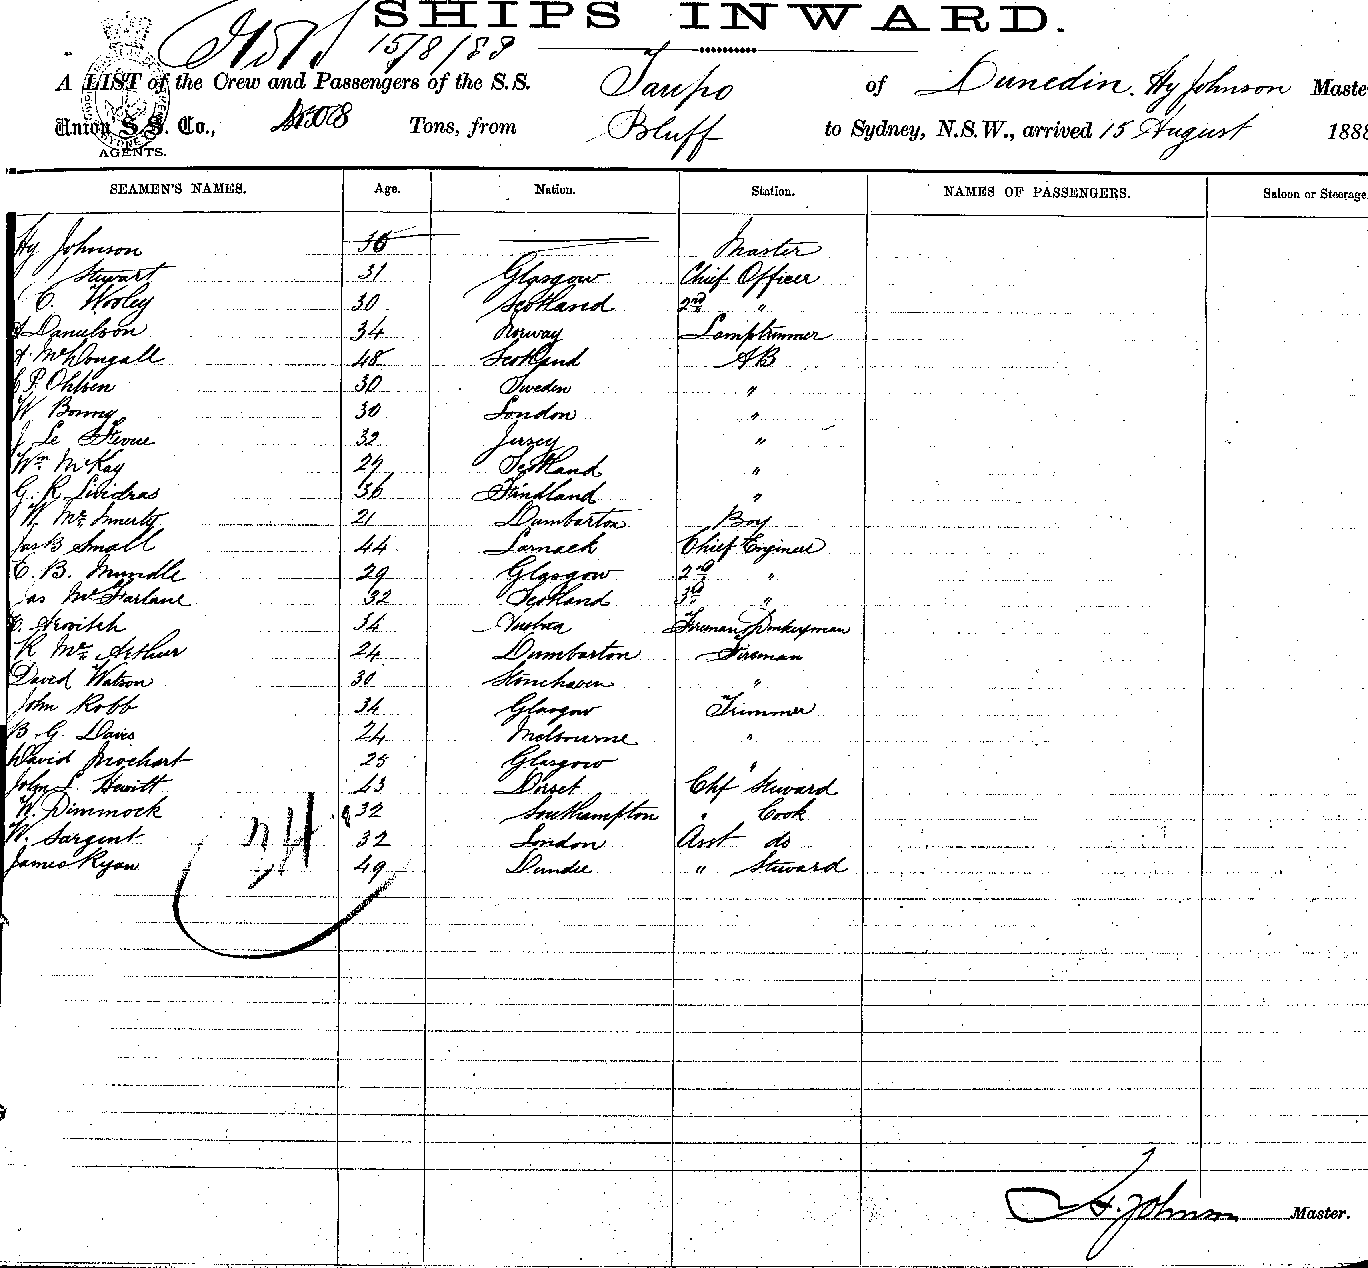 SHIPS INWARD.
15/8/88
A LIST of the Crew and Passengers of the S.S. Taupo of Dunedin, Hy Johnson Maste
Union S.S. Co., Tons, from Bluff to Sydney, N.S.W., arrived 15 August 1888
AGENTS.
SEAMEN'S NAMES. Age. Nation. Station. NAMES OF PASSENGERS. Saloon or Steerage
Hy Johnson 36 Master
Stewart 31 Glasgow Chief Officer
C. Wooley 30 Scotland 2nd "
Danielson 34 Norway Lamptrimmer
A McDougall 48 Scotland AB
P. Ohlsen 30 Sweden "
W Bonny 30 London "
J Le 32 Jersey "
Wm McKay 29 Scotland "
G. R 36 Findland "
W. Mc 21 Dumbarton Boy
Jas B Small 44 Chief Engineer
C. B. Mundle 29 Glasgow 2nd "
Jas McFarlane 32 Scotland 3rd "
34 Fireman & Donkeyman
R McArthur 24 Dumbarton Fireman
David Watson 30 Stonehaven "
John Robb 34 Glasgow Trimmer
B. G. Davis 24 Melbourne "
David 25 Glasgow "
John Hewitt 43 Dorset Chf Steward
W. Dimmock 32 Southampton " Cook
W. Sargent 32 London Asst do
James Ryan 49 Dundee " Steward
24
H. Johnson Master.